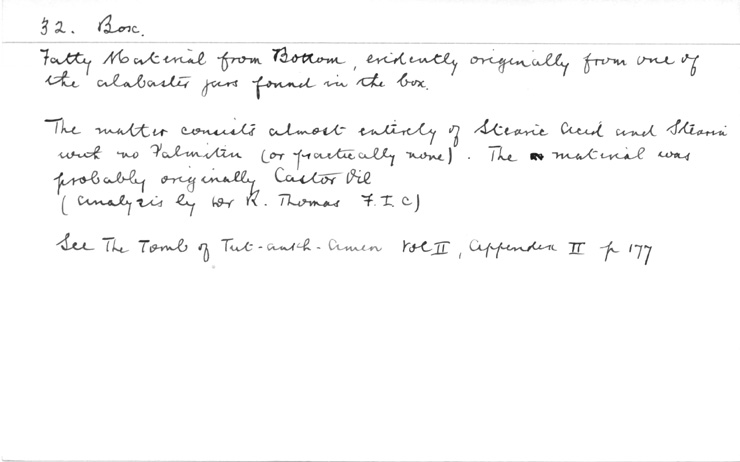 32. Box.
Fatty Material from Bottom, evidently originally from one of
the alabaster jars found in the box.
The matter consists almost entirely of Stearic Acid and Stearin
with no Palmitin (or practically none). The material was
probably originally Castor Oil
(analysis by Mr R. Thomas F.I.C)
See The Tomb of Tut-ankh-Amen Vol II, Appendix II p 177